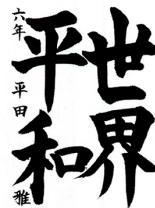 世界
平和
六年 平田 雅